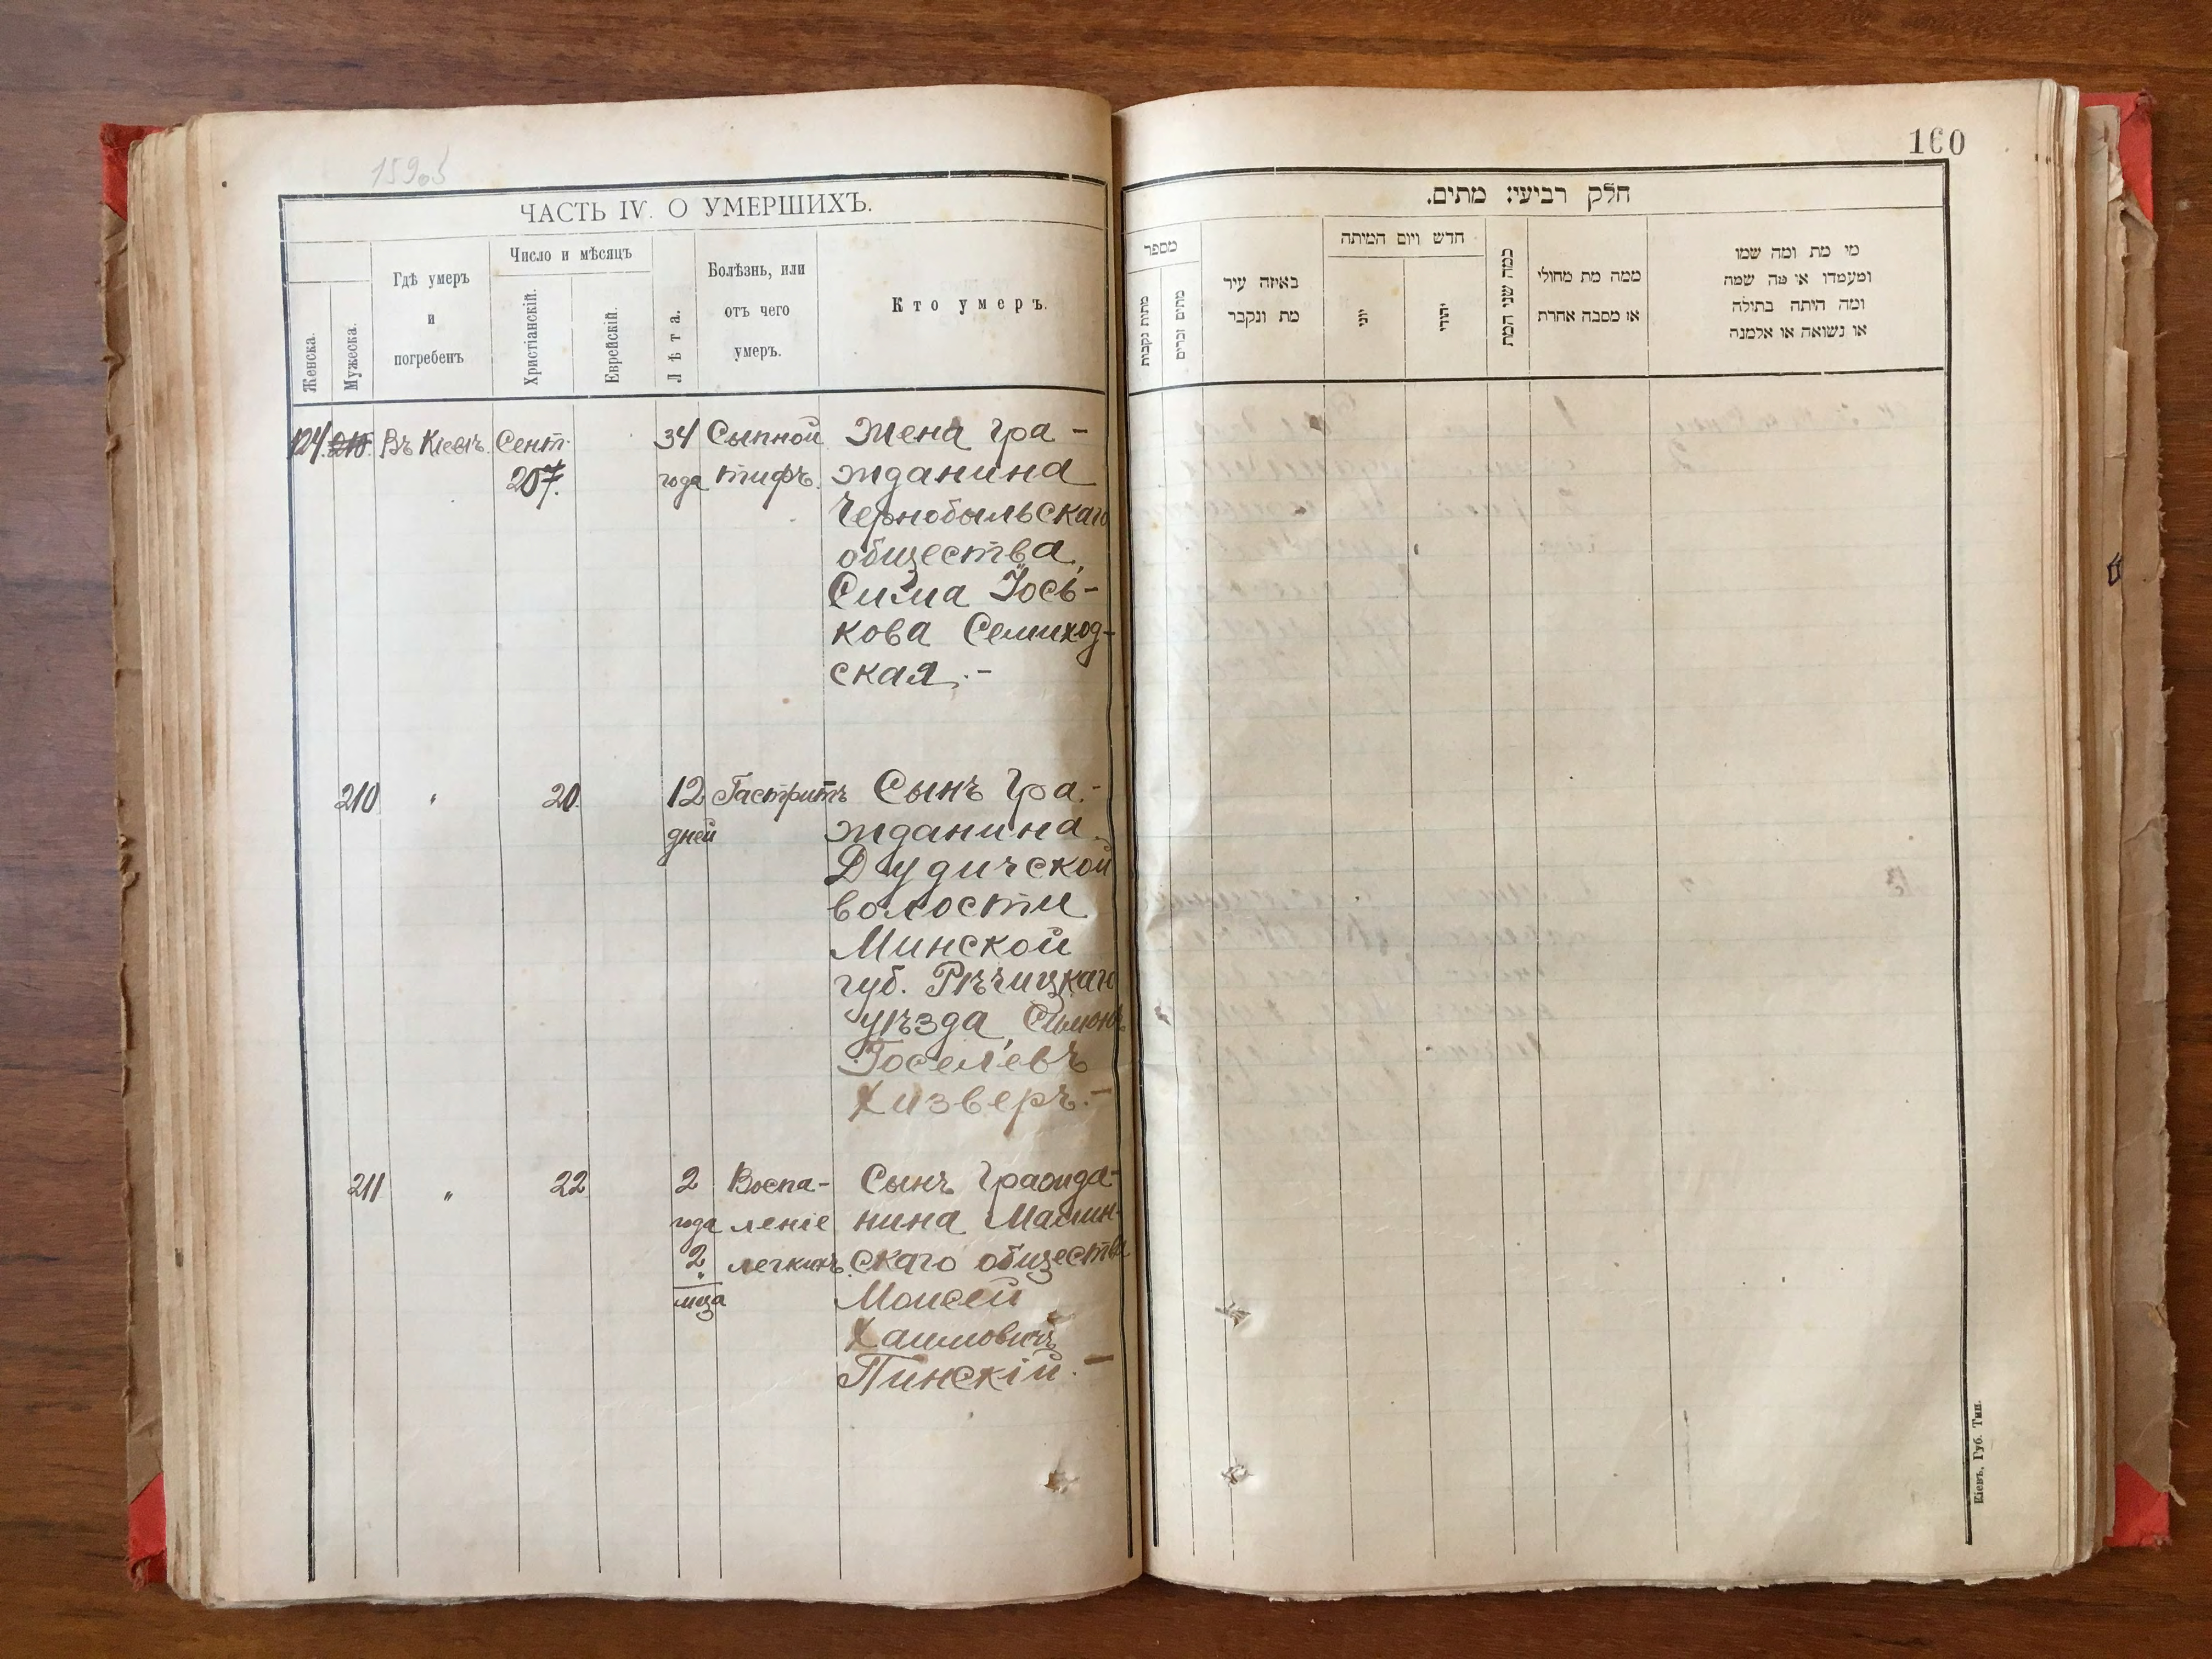 159об
ЧАСТЬ IV. О УМЕРШИХЪ.
Женска.
Мужеска.
Гдѣ умеръ
и
погребенъ
Число и мѣсяцъ
Христіанскій.
Еврейскій.
Лѣта.
Болѣзнь, или
отъ чего
умеръ.
Кто умеръ.
124. 210. Въ Кіевѣ. Сент. 34 Сыпной Жена гра-
207. года тифъ. жданина
Чернобыльскаго
общества,
Сима Іось-
кова Семиход-
ская.-
210 " 20. 12 Гастритъ Сынъ гра-
дней жданина
Дудичской
волости
Минской
губ. Рѣчицкаго
уѣзда, Симонъ
Іоселевъ
Хизверъ.-
211 " 22 2 Воспа- Сынъ гражда-
года леніе нина Малин-
2 легкихъ. скаго общества
м-ца Моисей
Хаимовичъ
Пинскій.-
160
חלק רביעי: מתים.
מספר
מתות נקבות
מתים זכרים
באיזה עיר
מת ונקבר
חדש ויום המיתה
יוני
יהודי
כמה שני המת
ממה מת מחולי
או מסבה אחרת
מי מת ומה שמו
ומעמדו או מה שמה
ומה היתה בתולה
או נשואה או אלמנה
Кіевъ, Губ. Тип.